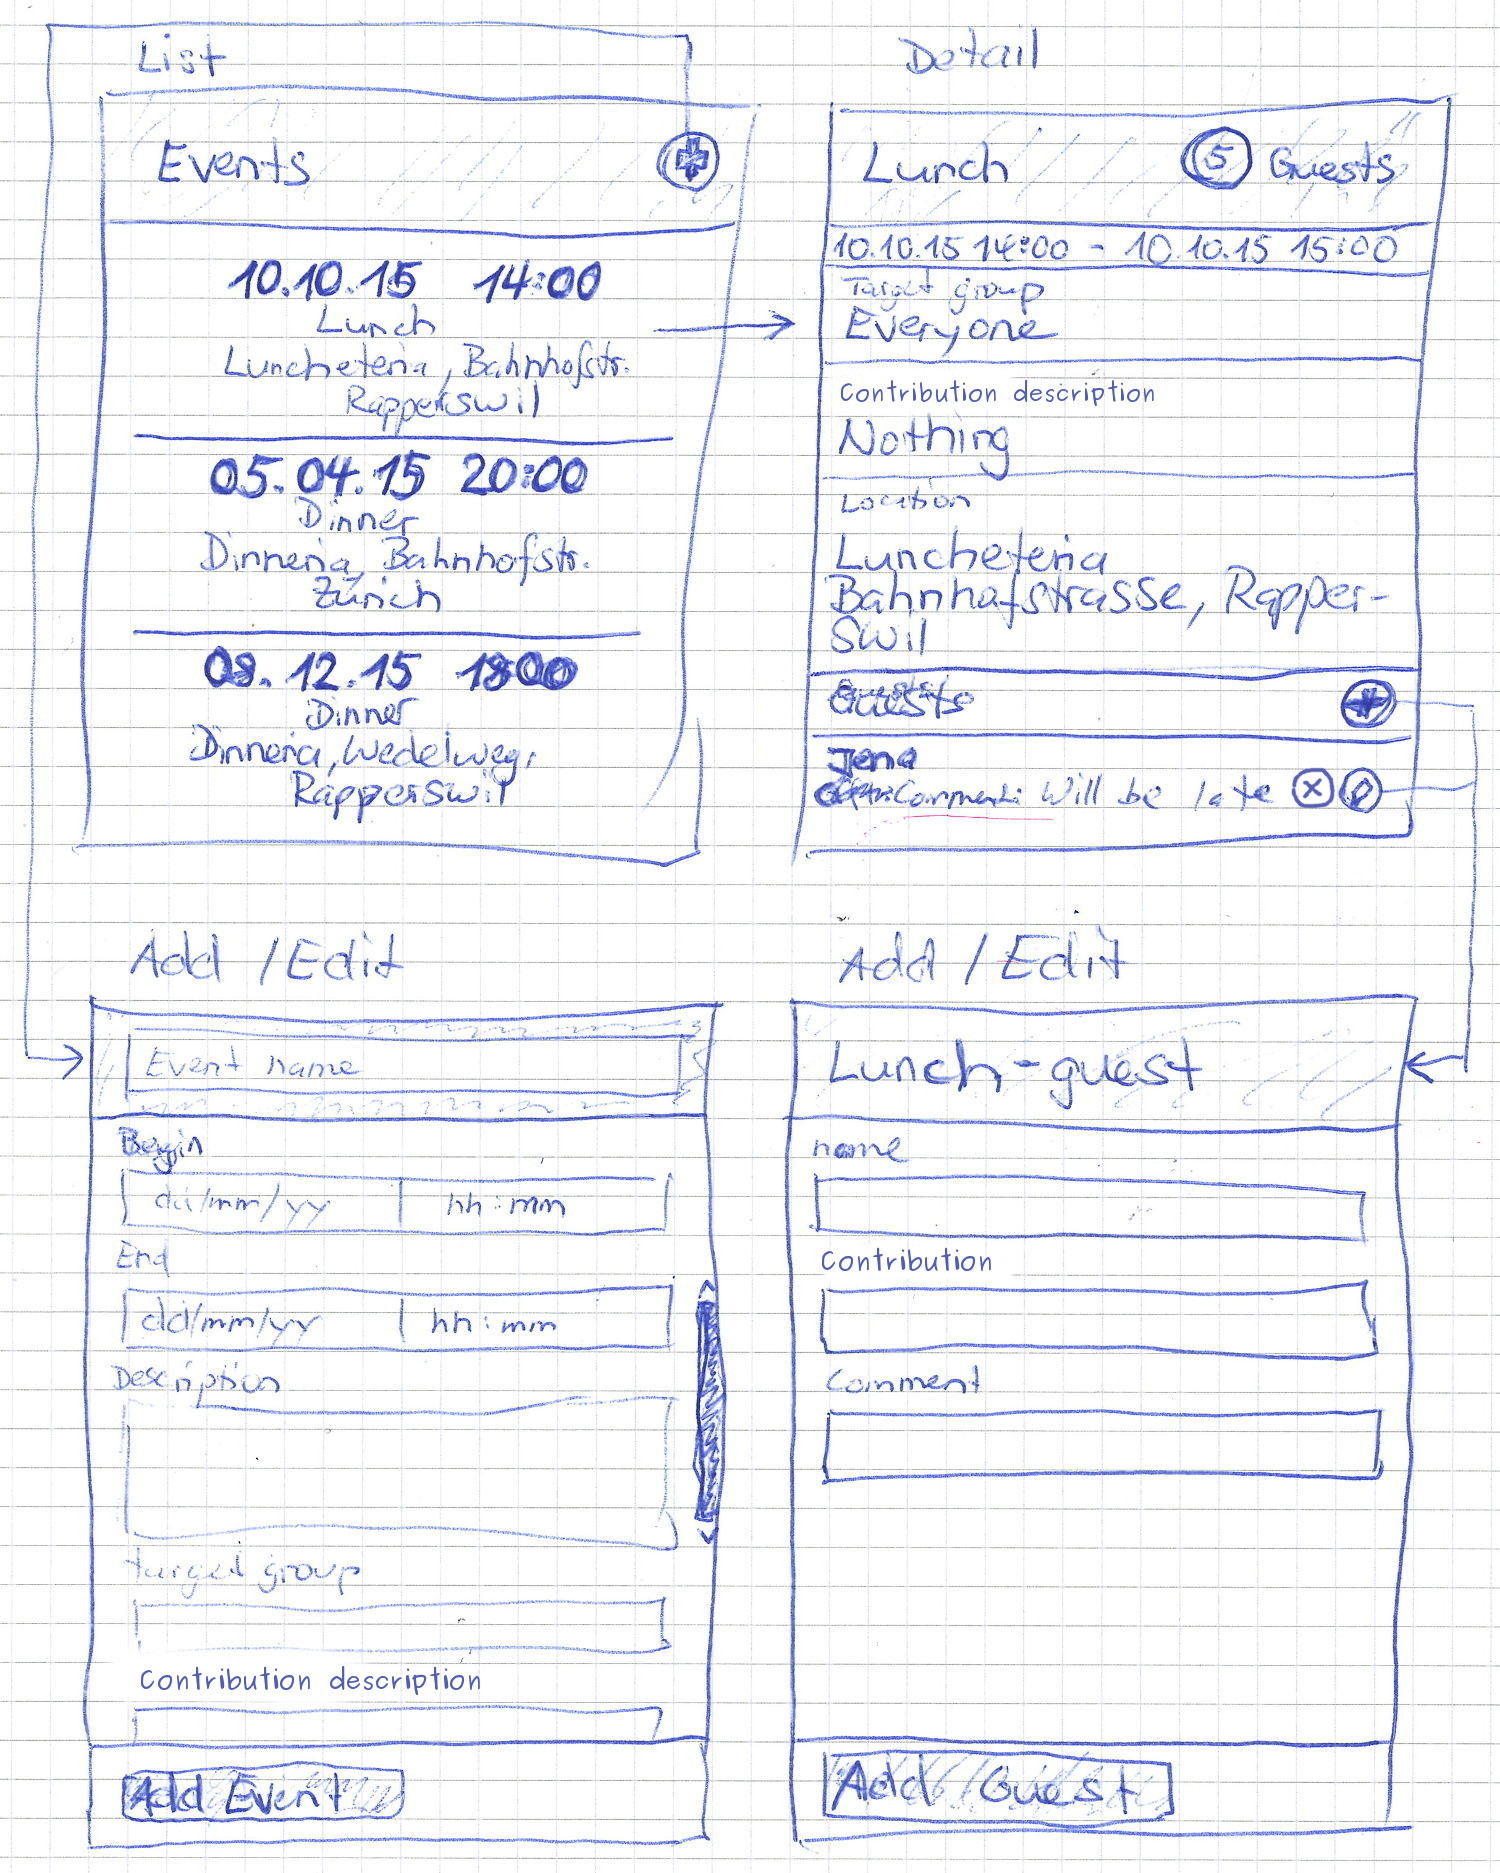 List
Events
10.10.15 14:00
Lunch
Luncheteria, Bahnhofstr.
Rapperswil
05.04.15 20:00
Dinner
Dinneria, Bahnhofstr.
Zürich
08.12.15 18:00
Dinner
Dinneria, Wedelweg,
Rapperswil
Detail
Lunch 5 Guests
10.10.15 14:00 - 10.10.15 15:00
Target group
Everyone
Contribution description
Nothing
Location
Luncheteria
Bahnhofstrasse, Rapper-
swil
Guests
Jena
Comment: Will be late
Add / Edit
Event name
Begin
dd/mm/yy hh:mm
End
dd/mm/yy hh:mm
Description
target group
Contribution description
Add Event
Add / Edit
Lunch-guest
name
Contribution
Comment
Add Guest